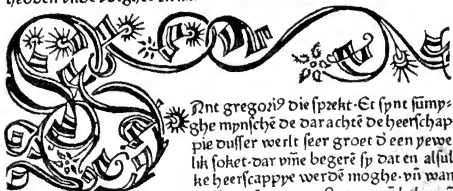 Ant gregoriꝰ die ſprekt·Et ſynt ſūmy⸗
ghe mynſchē de dar achtē de heerſchap
pie duſſer werlt ſeer groet đ een yewe
lik ſoket·dar vm̄e begerē ſy dat en alſul
ke heerſcappye werdē moghe·vn̄ wan